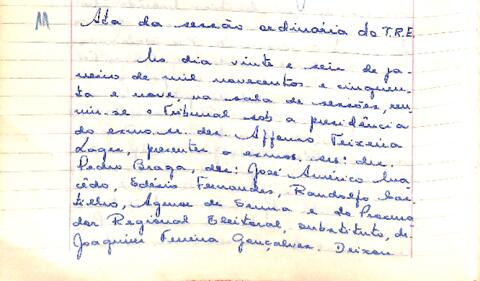 11
Ata da sessão ordinária do T.R.E.
No dia vinte e seis de ja-
neiro de mil novecentos e cinquen-
ta e nove, na sala de sessões, reu-
niu-se o Tribunal sob a presidência
do exmo. sr. des. Affonso Teixeira
Lages, presentes os exmos. srs: des.
Pedro Braga, drs: José Américo Ma-
cêdo, Edésio Fernandes, Randolfo Cas-
tilho, Agenor de Senna e do Procura-
dor Regional Eleitoral, substituto, dr.
Joaquim Ferreira Gonçalves. Deixou